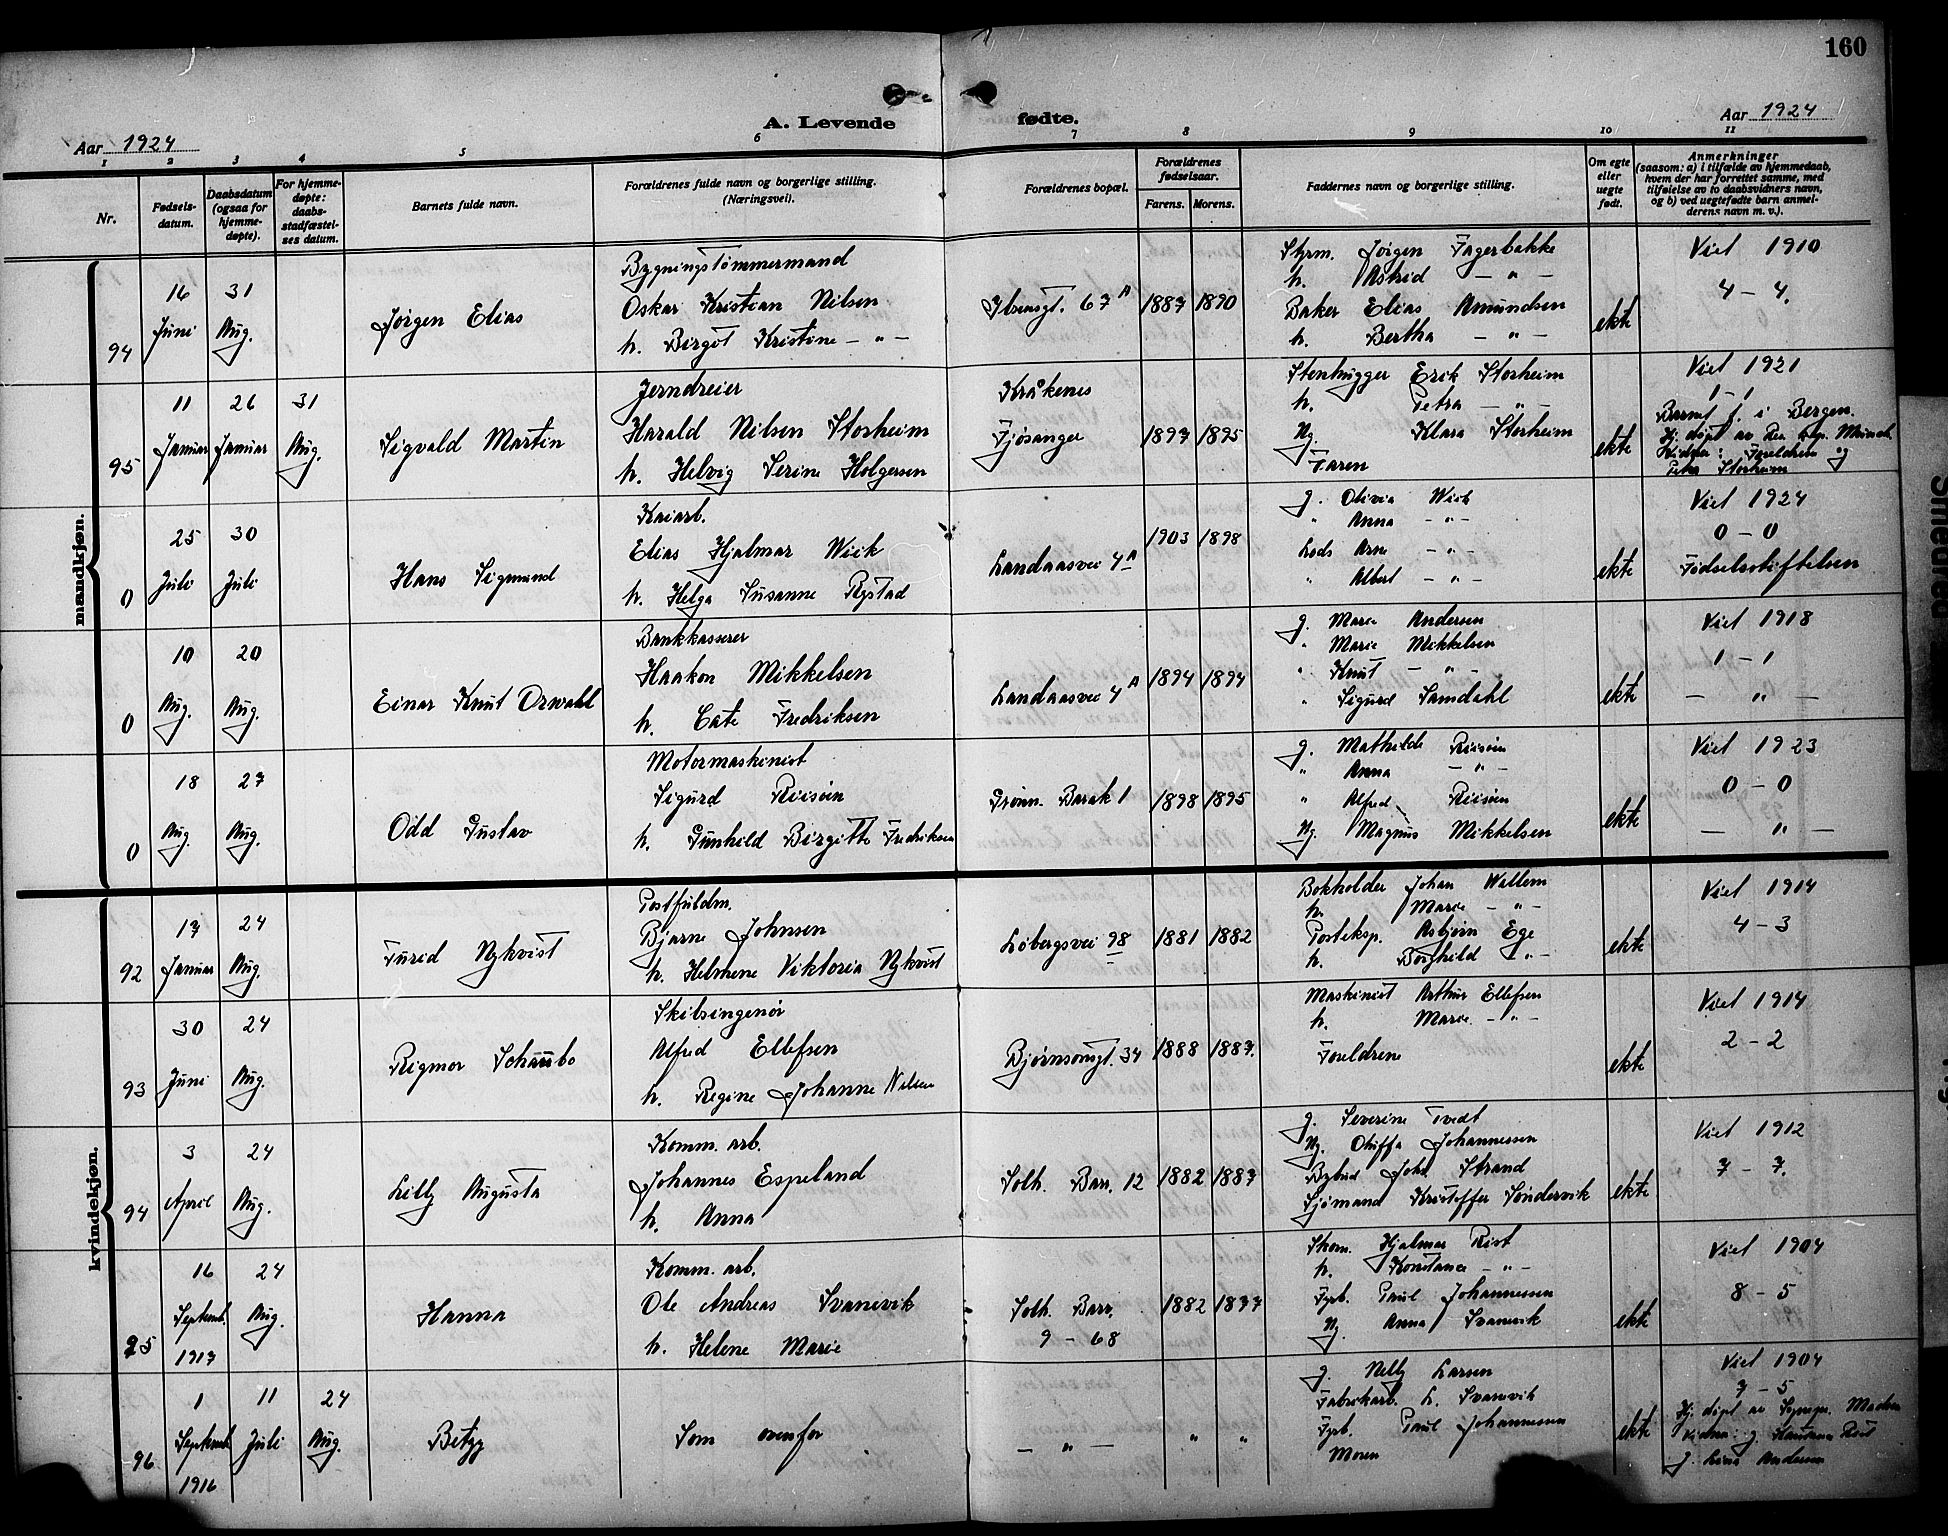 160
A. Levende fødte.
Aar 1924
Aar 1924
1 2 3 4 5 6 7 8 9 10 11
Nr.
Fødsels-
datum.
Daabsdatum
(ogsaa for
hjemme-
døpte).
For hjemme-
døpte:
daabs-
stadfæstel-
ses datum.
Barnets fulde navn.
Forældrenes fulde navn og borgerlige stilling.
(Næringsvei).
Forældrenes bopæl.
Forældrenes
fødselsaar.
Farens. Morens.
Faddernes navn og borgerlige stilling.
Om egte
eller
uegte
født.
Anmerkninger
(saasom: a) i tilfælde av hjemmedaab,
hvem der har forrettet samme, med
tilføielse av to daabsvidners navn,
og b) ved uegtefødte barn anmel-
derens navn m. v.).
mandkjøn.
94
16
Juni
31
Aug.
Jørgen Elias
Bygningstømmermand
Oskar Kristian Nilsen
h. Birgit Kristine - " -
Ibsensgt. 67 A
1887 1890
Styrm. Jørgen Fagerbakke
h. Astrid - " -
Baker Elias Amundsen
h. Bertha - " -
ekte
Viet 1910
4 - 4.
95
11
Januar
26
Januar
31
Aug.
Sigvald Martin
Jerndreier
Harald Nilsen Storheim
h. Helvig Serine Holgersen
Kråkenes
Fjøsanger
1897 1895
Stenhugger Erik Storheim
h. Petra - " -
Ug. Klara Storheim
Faren
ekte
Viet 1921
1 - 1
Barnet f. i Bergen.
Hj. døpt av Res. kap. Munch
Vidner: Foreldrene og
Petra Storheim
0
25
Juli
30
Juli
Hans Sigmund
Kaiarb.
Elias Hjalmar Wick
h. Helga Susanne Rystad
Landaasvei 4 A
1903 1898
g. Olivia Wick
" Anna - " -
Lods Arne - " -
" Albert - " -
ekte
Viet 1924
0 - 0
Fødselsstiftelsen
0
10
Aug.
20
Aug.
Einar Knut Oswald
Bankkasserer
Haakon Mikkelsen
h. Cate Fredriksen
Landaasvei 4 A
1894 1894
g. Marie Andersen
" Marie Mikkelsen
" Knut - " -
" Sigurd Samdahl
ekte
Viet 1918
1 - 1
- " -
0
18
Aug.
27
Aug.
Odd Gustav
Motormaskinist
Sigurd Riisøen
h. Gunhild Birgitte Fredriksen
Grønn. Barak 1
1898 1895
g. Mathilde Riisøen
" Anna - " -
" Alfred Riisøen
Ug. Magnus Mikkelsen
ekte
Viet 1923
0 - 0
- " -
kvindekjøn.
92
17
Januar
24
Aug.
Turid Nykvist
Postfuldm.
Bjarne Johnsen
h. Helmine Viktoria Nykvist
Løbergsvei 98
1881 1882
Bokholder Johan Willem
h. Marie - " -
Posteksp. Asbjørn Ege
h. Borghild " -
ekte
Viet 1914
4 - 3
93
30
Juni
24
Aug.
Rigmor Schaubo
Skibsingeniør
Alfred Ellefsen
h. Regine Johanne Nilsen
Bjørnsonsgt. 34
1888 1887.
Maskinist Arthur Ellefsen
h. Marie. - " -
Foreldrene
ekte
Viet 1914
2 - 2
94
3
April
24
Aug.
Lilly Augusta
Komm. arb.
Johannes Espeland
h. Anna
Solh. Barr. 12
1882 1887
g. Severine Tvedt
Ug. Oluffa Johannessen
Bybud Joh. Strand
Sjømand Kristoffer Søndervik
ekte
Viet 1912
7 - 7.
95
16
Septemb.
1917
24
Aug.
Hanna
Komm. arb.
Ole Andreas Svanevik
h. Helene Marie
Solh. Barr.
9 - 68
1882 1877
Skom. Hjalmar Rist
h. Konstance - " -
Fyrb. Paul Johannessen
Ug. Anna Svanevik
ekte
Viet 1904
8 - 5
96
1
Septemb.
1916
11
Juli
24
Aug.
Betzy
Som ovenfor
- " -
" "
g. Nelly Larsen
Fabrikarb. L. Svanevik
Fyrb. Paul Johannessen
Moren
ekte
Viet 1904
7 - 5
Hj. døpt av Sognepr. Madsen
Vidner: g. Konstance Rist
g. Lina Andersen